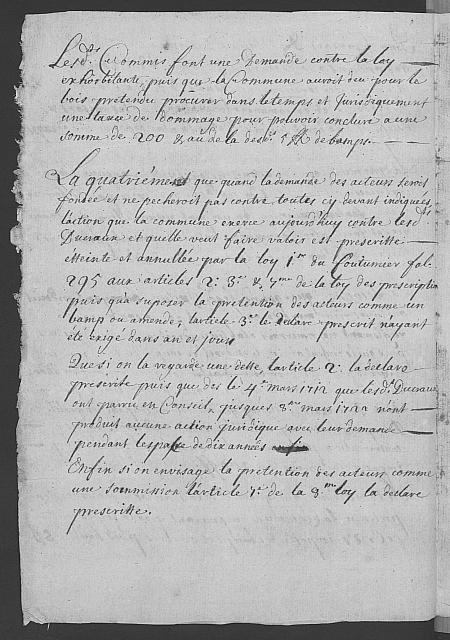 Lesd.ts Commis font une Demande contre la loy
exhorbitante, puis que la Commune auroit deu pour le
bois pretendu procurer dans le temps et Juridiquement
une taxe de Dommage pour pouvoir conclure a une
somme de 200 & au de la des 5 ff de bamps.
La quatriément que quand la demande des acteurs seroit
fondée et ne pecheroit pas contre toutes cy devant indiquées
laction que la commune exerce aujourd'huy contre lesd.ts
Ducraux et quelle veut faire valoir est prescritte
etteinte et annullée par la loy 1.re du Coutumier fol.
295 aux articles 2. 3.e & 7.me de la loy des prescription
puis que suposer la pretention des acteurs comme un
bamp ou amende, larticle 3.e le declare prescrit nayant
été exigé dans an et jour
Que si on la regarde une dette, larticle 2. la declare
prescrite puis que des le 4.e mars 1712 que lesd.ts Ducraux
ont parru en Conseil, jusques 3.me mars 1722 nont
produit aucune action juridique avec leur demande
pendant lespasse de dix années
Enfin si on envisage la pretention des acteurs comme
une soumission l'article 7.e de la 3.me loy la declare
prescritte.